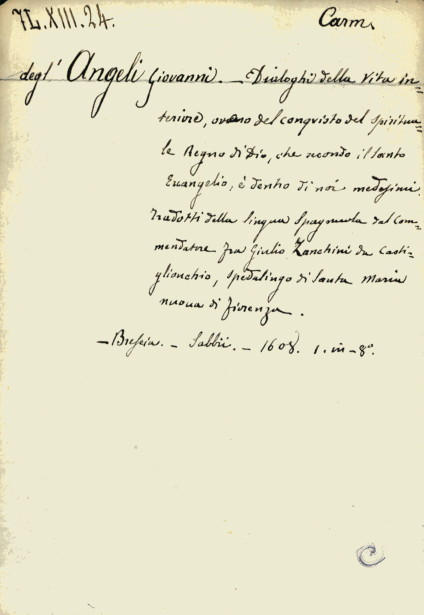 7L.XIII.24. Carm.
degl' Angeli Giovanni. — Dialoghi della Vita in=
teriore, overo del conquisto del Spiritua=
le Regno di Dio, che secondo il santo
Euangelio, è dentro di noi medesimi
Tradotti della lingua Spagnuola dal Com=
mendatore fra Giulio Zanchini da Casti=
glionchio, Spedalingo di santa Maria
nuova di Fiorenza.
— Brescia. — Sabbii. — 1608. 1. in - 8°.
C